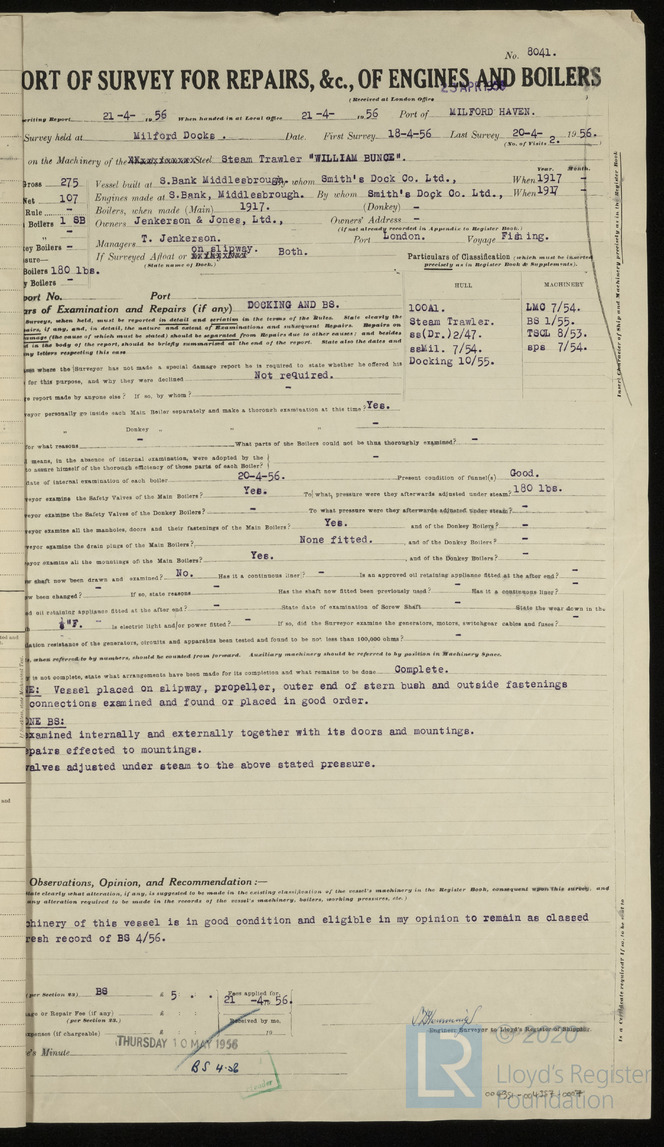 No. 8041.
ORT OF SURVEY FOR REPAIRS, &c., OF ENGINES AND BOILERS
(Received at London Office
riting Report 21-4- 1956 When handed in at Local Office 21-4- 1956 Port of MILFORD HAVEN.
Survey held at Milford Docks . Date. First Survey 18-4-56 Last Survey 20-4- 1956.
(No. of Visits 2.
on the Machinery of the Steel Steam Trawler "WILLIAM BUNCE".
Year. Month.
Gross 275 Vessel built at S.Bank Middlesbrough. By whom Smith's Dock Co. Ltd., When 1917 -
Net 107 Engines made at S.Bank, Middlesbrough. By whom Smith's Dock Co. Ltd., When 1917 -
Rule - Boilers, when made (Main) 1917. (Donkey) -
Boilers 1 SB Owners Jenkerson & Jones, Ltd., Owners' Address -
(If not already recorded in Appendix to Register Book.)
Managers T. Jenkerson. Port London. Voyage Fishing.
on slipway.
If Surveyed Afloat or Both.
(State name of Dock.)
Boilers 180 lbs.
y Boilers -
Particulars of Classification (which must be inserted
precisely as in Register Book & Supplements).
HULL MACHINERY
100A1. LMC 7/54.
Steam Trawler. BS 1/55.
ss(Dr.)2/47. TSCL 8/53.
ssMil. 7/54. sps 7/54.
Docking 10/55.
port No. Port
rs of Examination and Repairs (if any) DOCKING AND BS.
in the body of the report, should be briefly summarised at the end of the report. State also the dates and
ny letters respecting this case.
en where the Surveyor has not made a special damage report he is required to state whether he offered his
for this purpose, and why they were declined Not required.
e report made by anyone else? If so, by whom? -
eyor personally go inside each Main Boiler separately and make a thorough examination at this time? Yes.
" Donkey " " " -
for what reasons - What parts of the Boilers could not be thus thoroughly examined? -
l means, in the absence of internal examination, were adopted by the
to assure himself of the thorough efficiency of those parts of each Boiler? -
date of internal examination of each boiler 20-4-56. Present condition of funnel(s) Good.
eyor examine the Safety Valves of the Main Boilers? Yes. To what pressure were they afterwards adjusted under steam? 180 lbs.
eyor examine the Safety Valves of the Donkey Boilers? - To what pressure were they afterwards adjusted under steam? -
eyor examine all the manholes, doors and their fastenings of the Main Boilers? Yes. and of the Donkey Boilers? -
eyor examine the drain plugs of the Main Boilers? None fitted. , and of the Donkey Boilers? -
eyor examine all the mountings of the Main Boilers? Yes. , and of the Donkey Boilers? -
w shaft now been drawn and examined? No. Has it a continuous liner? - Is an approved oil retaining appliance fitted at the after end? -
w been changed? - If so, state reasons - Has the shaft now fitted been previously used? - Has it a continuous liner? -
ed oil retaining appliance fitted at the after end? - State date of examination of Screw Shaft - State the wear down in the
"F. Is electric light and/or power fitted? - If so, did the Surveyor examine the generators, motors, switchgear cables and fuses? -
ation resistance of the generators, circuits and apparatus been tested and found to be not less than 100,000 ohms? -
s, when referred to by numbers, should be counted from forward. Auxiliary machinery should be referred to by position in Machinery Space.
y is not complete, state what arrangements have been made for its completion and what remains to be done Complete.
E: Vessel placed on slipway, propeller, outer end of stern bush and outside fastenings
connections examined and found or placed in good order.
ONE BS:
xamined internally and externally together with its doors and mountings.
pairs effected to mountings.
alves adjusted under steam to the above stated pressure.
Observations, Opinion, and Recommendation :—
State clearly what alteration, if any, is suggested to be made in the existing classification of the vessel's machinery in the Register Book, consequent upon this survey, and
any alteration required to be made in the records of the vessel's machinery, boilers, working pressures, etc.)
chinery of this vessel is in good condition and eligible in my opinion to remain as classed
resh record of BS 4/56.
(per Section 23) BS £ 5 . . Fees applied for
21 -4- 56.
ge or Repair Fee (if any) £ : :
(per Section 23.)
Received by me,
xpenses (if chargeable) £ : : 19
Engineer Surveyor to Lloyd's Register of Shipping.
e's Minute THURSDAY 10 MAY 1956
BS 4.56
© 2020
LR
Lloyd's Register
Foundation